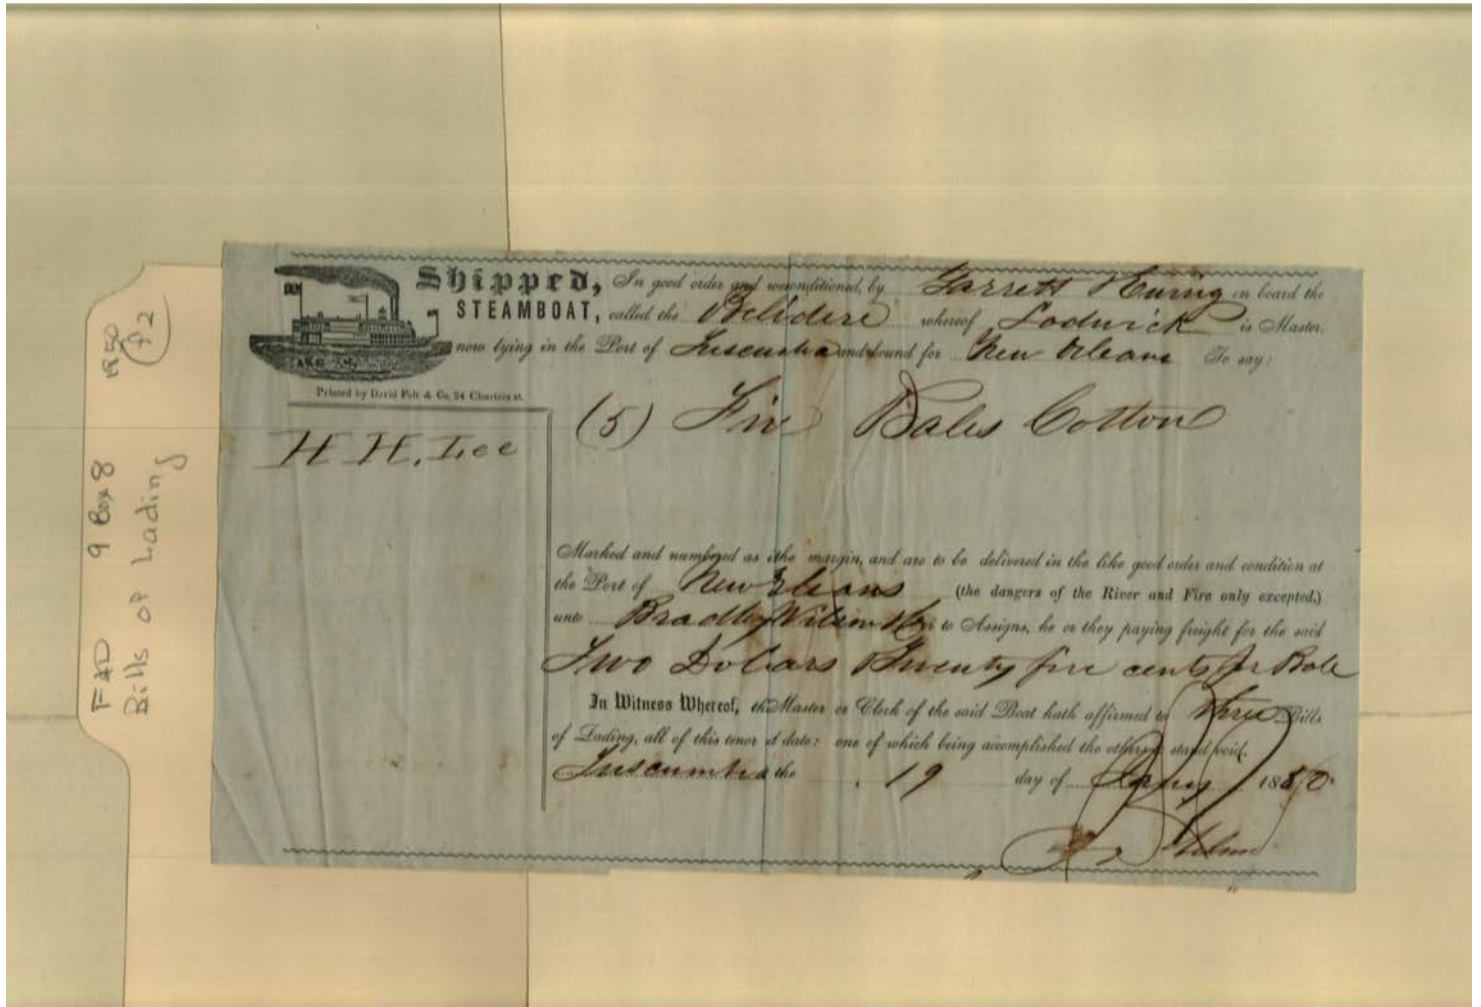 Shipped, In good order and wellconditioned, by Garrett on board the
STEAMBOAT, called the Belvidere whereof Lodwick is Master.
now lying in the Port of Tuscumbia and bound for New Orleans To say:
Printed by David Felt & Co, 24 Chartres st.
(5) Five Bales Cotton
H H. Lee
Marked and numbered as i the margin, and are to be delivered in the like good order and condition at
the Port of New Orleans (the dangers of the River and Fire only excepted,)
unto Bradley Wilson & Co or to Assigns, he or they paying freight for the said
Two Dollars Twenty five cents pr Bale
In Witness Whereof, the Master or Clerk of the said Boat hath affirmed to three Bills
of Lading, all of this tenor d date: one of which being accomplished the others stand void.
Tuscumbia the 19 day of Jany 1850.
F&D 9 Box 8 1850
Bills of Lading f2